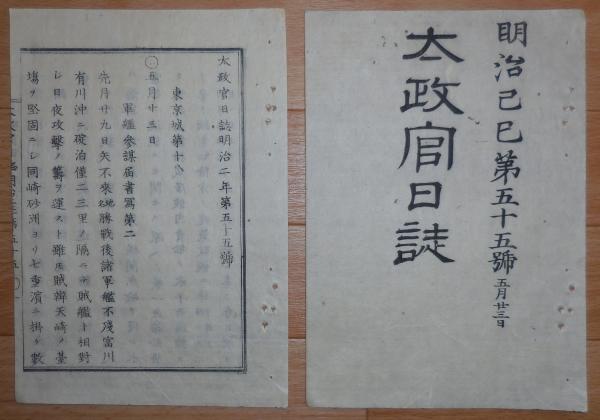 明治己巳第五十五號 五月廿三日
太政官日誌
太政官日誌明治二年第五十五號
東京城第十
五月廿三日
軍艦參謀届書寫第二
先月廿九日矢不來地名勝戰後諸軍艦不殘富川
有川沖ニ碇泊僅二三里ヲ隔テ賊艦ト相對
シ日夜攻擊ノ籌ヲ運スト雖𪜈賊辨天崎ノ臺
塲ヲ堅固ニシ同崎砂洲ヨリ七重濱ニ掛ケ數